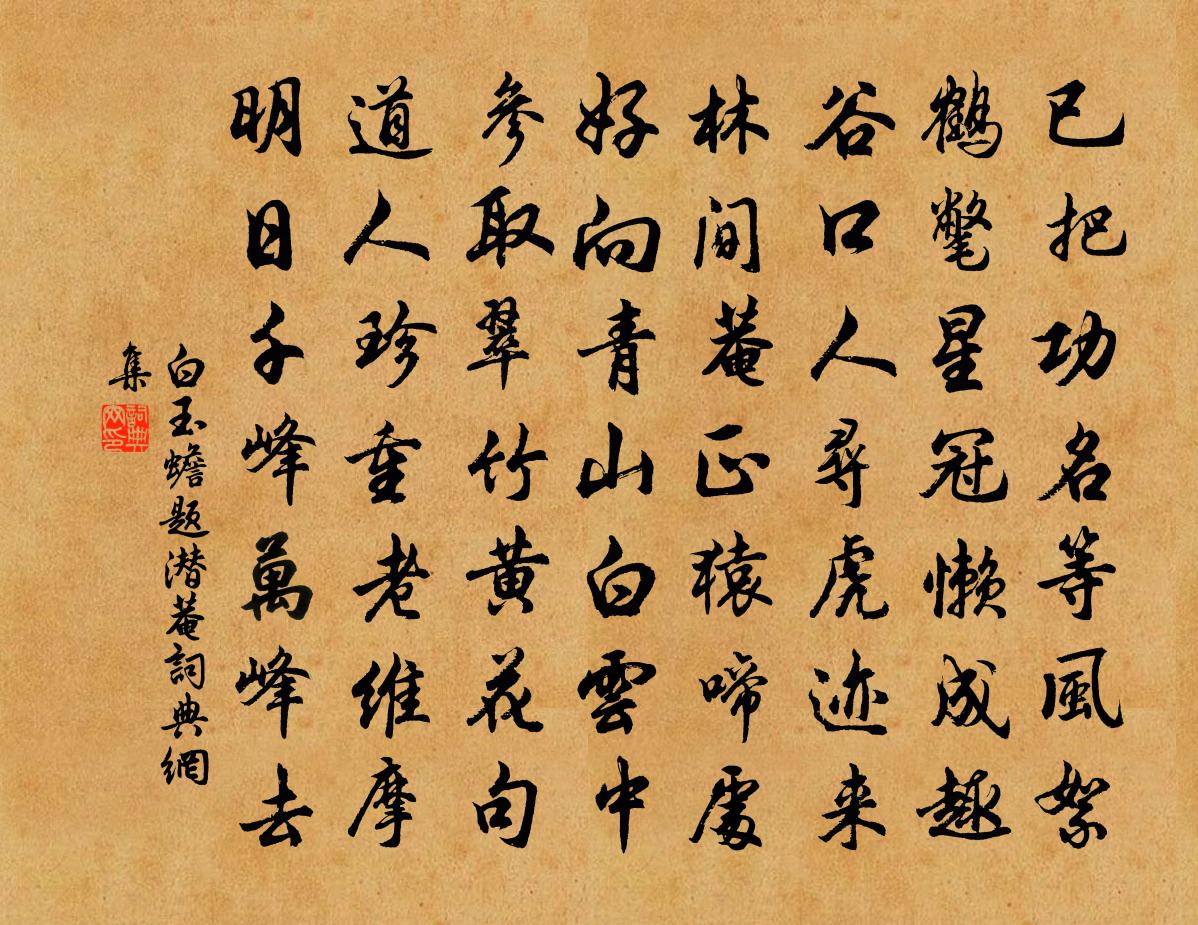 已把功名等風絮
鶴氅星冠懒成趣
谷口人尋虎迹来
林間菴正猿啼處
好向青山白雲中
參取翠竹黄花句
道人珍重老維摩
明日千峰萬峰去
白玉蟾题潜菴詞典網
集
詞典網印